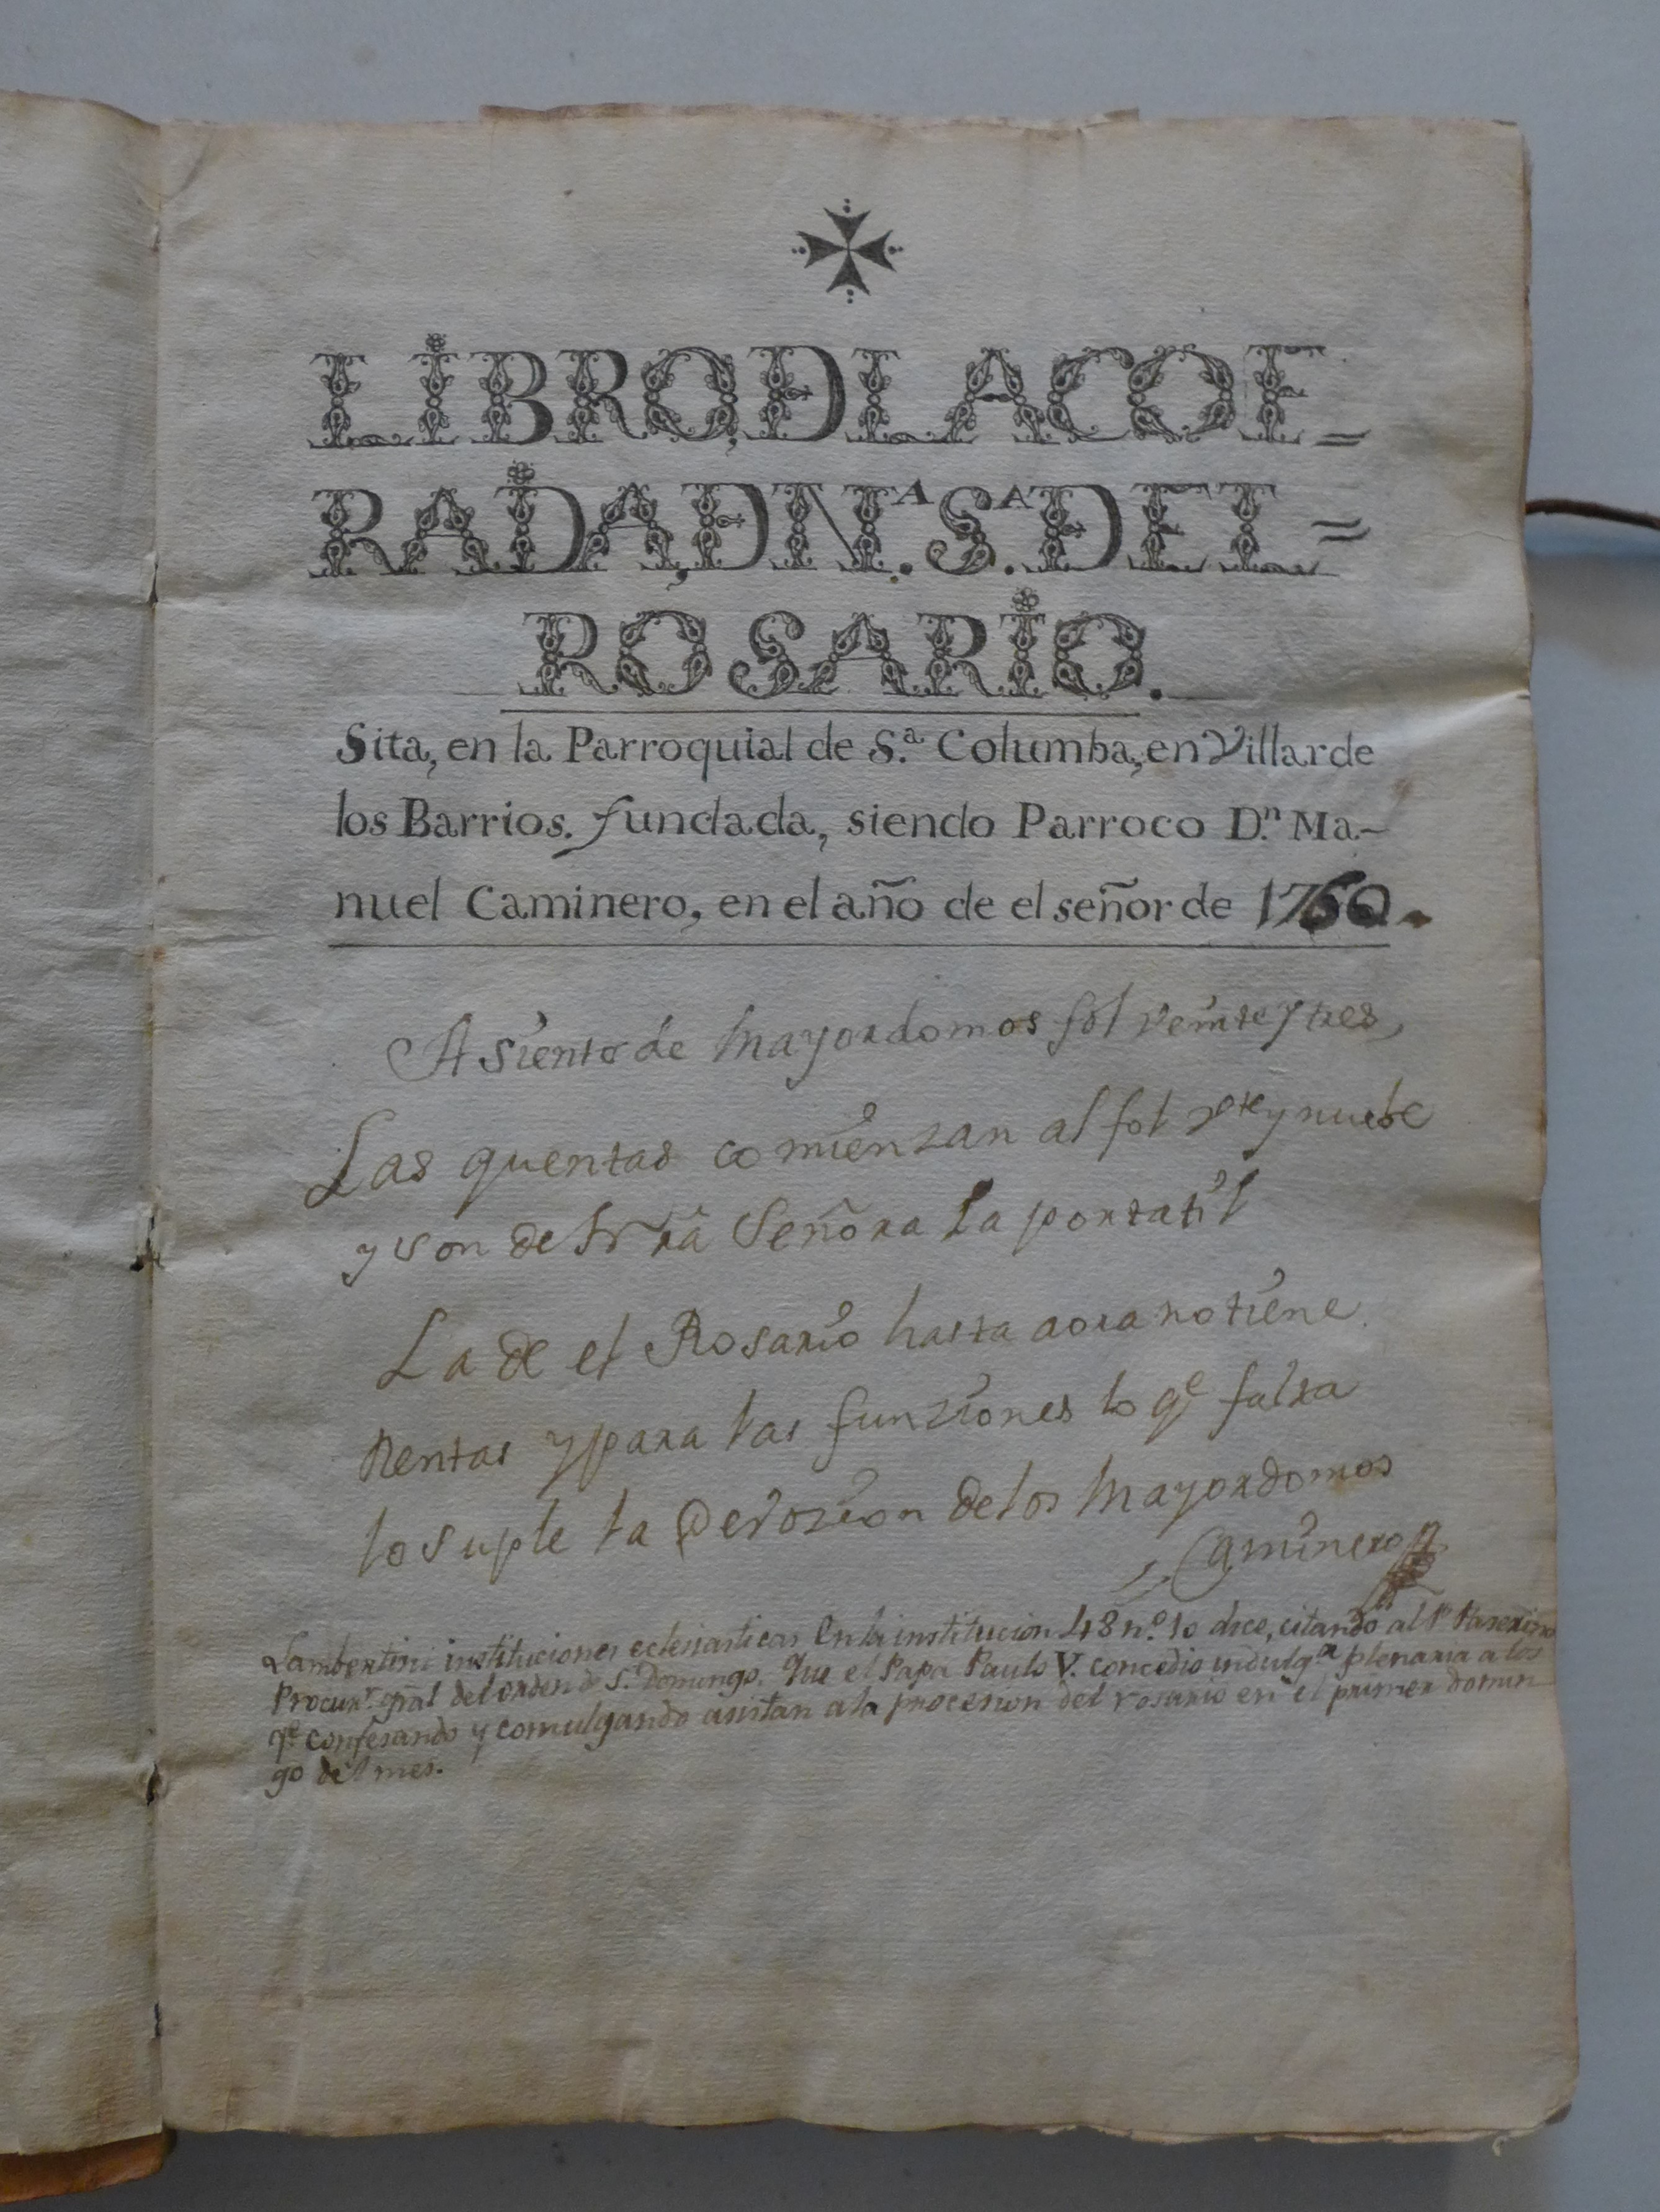 LIBRO, DLA COF=
RADA, DN.A S.A DEL=
ROSARIO.
Sita, en la Parroquial de S.a Columba, en Villar de
los Barrios. fundada, siendo Parroco D.n Ma-
nuel Caminero, en el año de el señor de 1760.
Asiento de Mayordomos fol veinte y tres,
Las quentas comienzan al fol vte y nuebe
y son de Nrã Señora La portatil
La de el Rosario hasta aora no tiene
Rentas y para las funziones lo qe falta
lo suple la Devozion de los Mayordomos
Caminero
Lambertini instituciones eclesiasticas En la institucion 48 n.o 10 dice, citando al P.
Procur.r gral del orden de S. Domingo. Que el Papa Paulo V. concedio indulg.a plenaria a los
qe confesando y comulgando asistan a la procesion del rosario en el primer domin
go del mes.